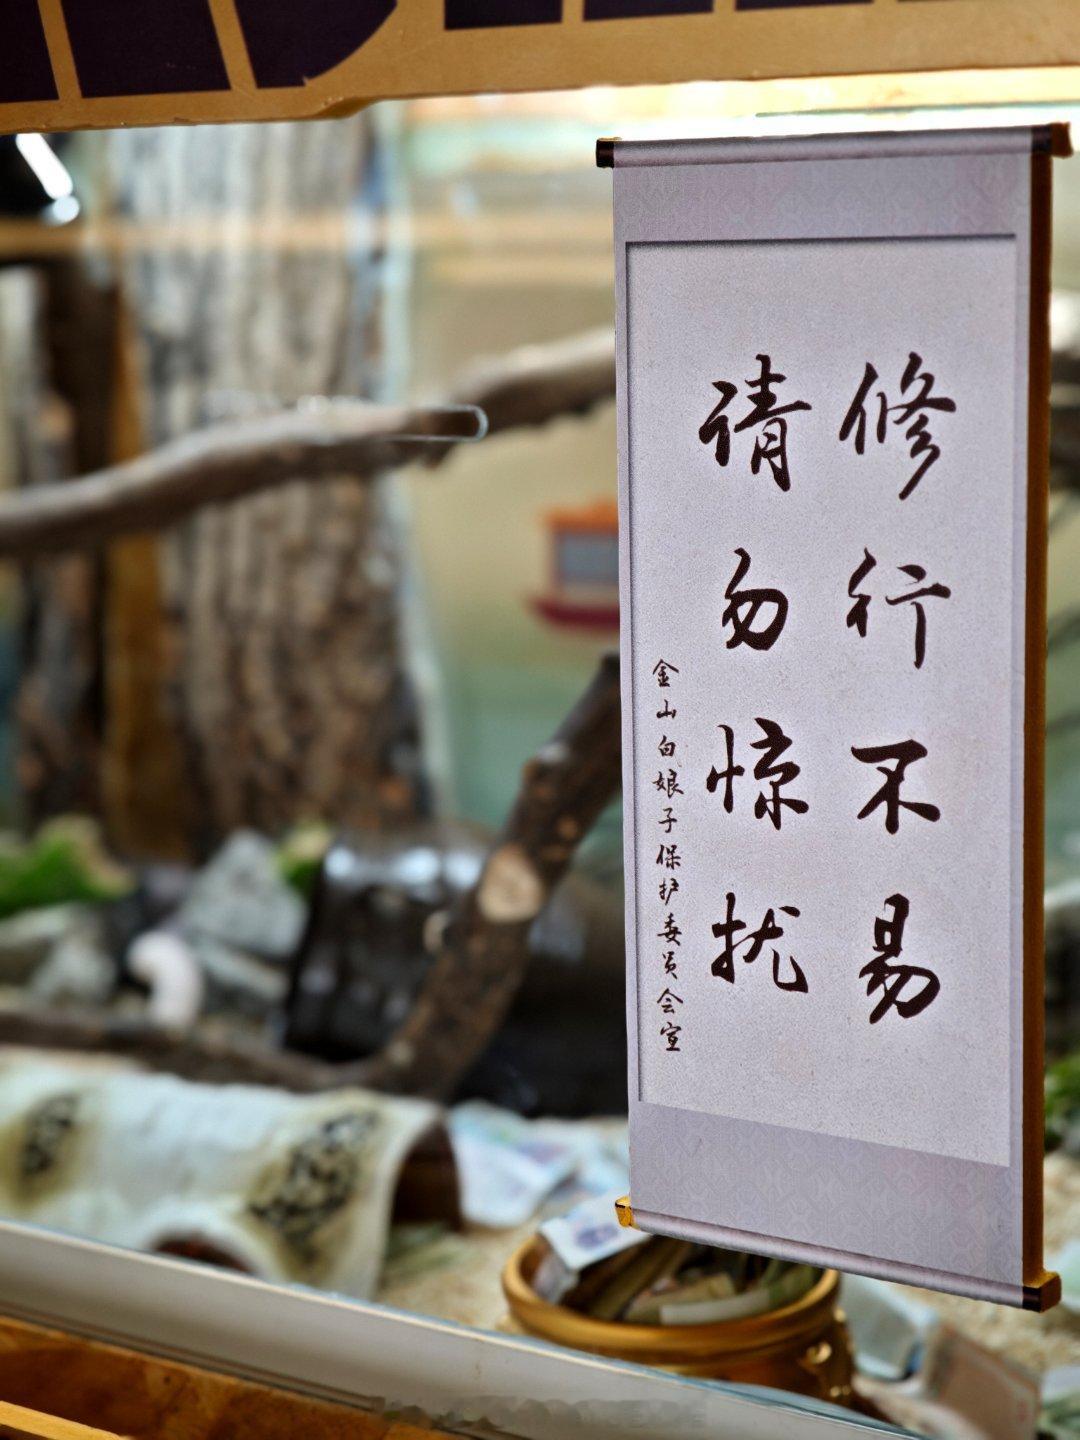 修行不易
请勿惊扰
金山白娘子保护委员会宣